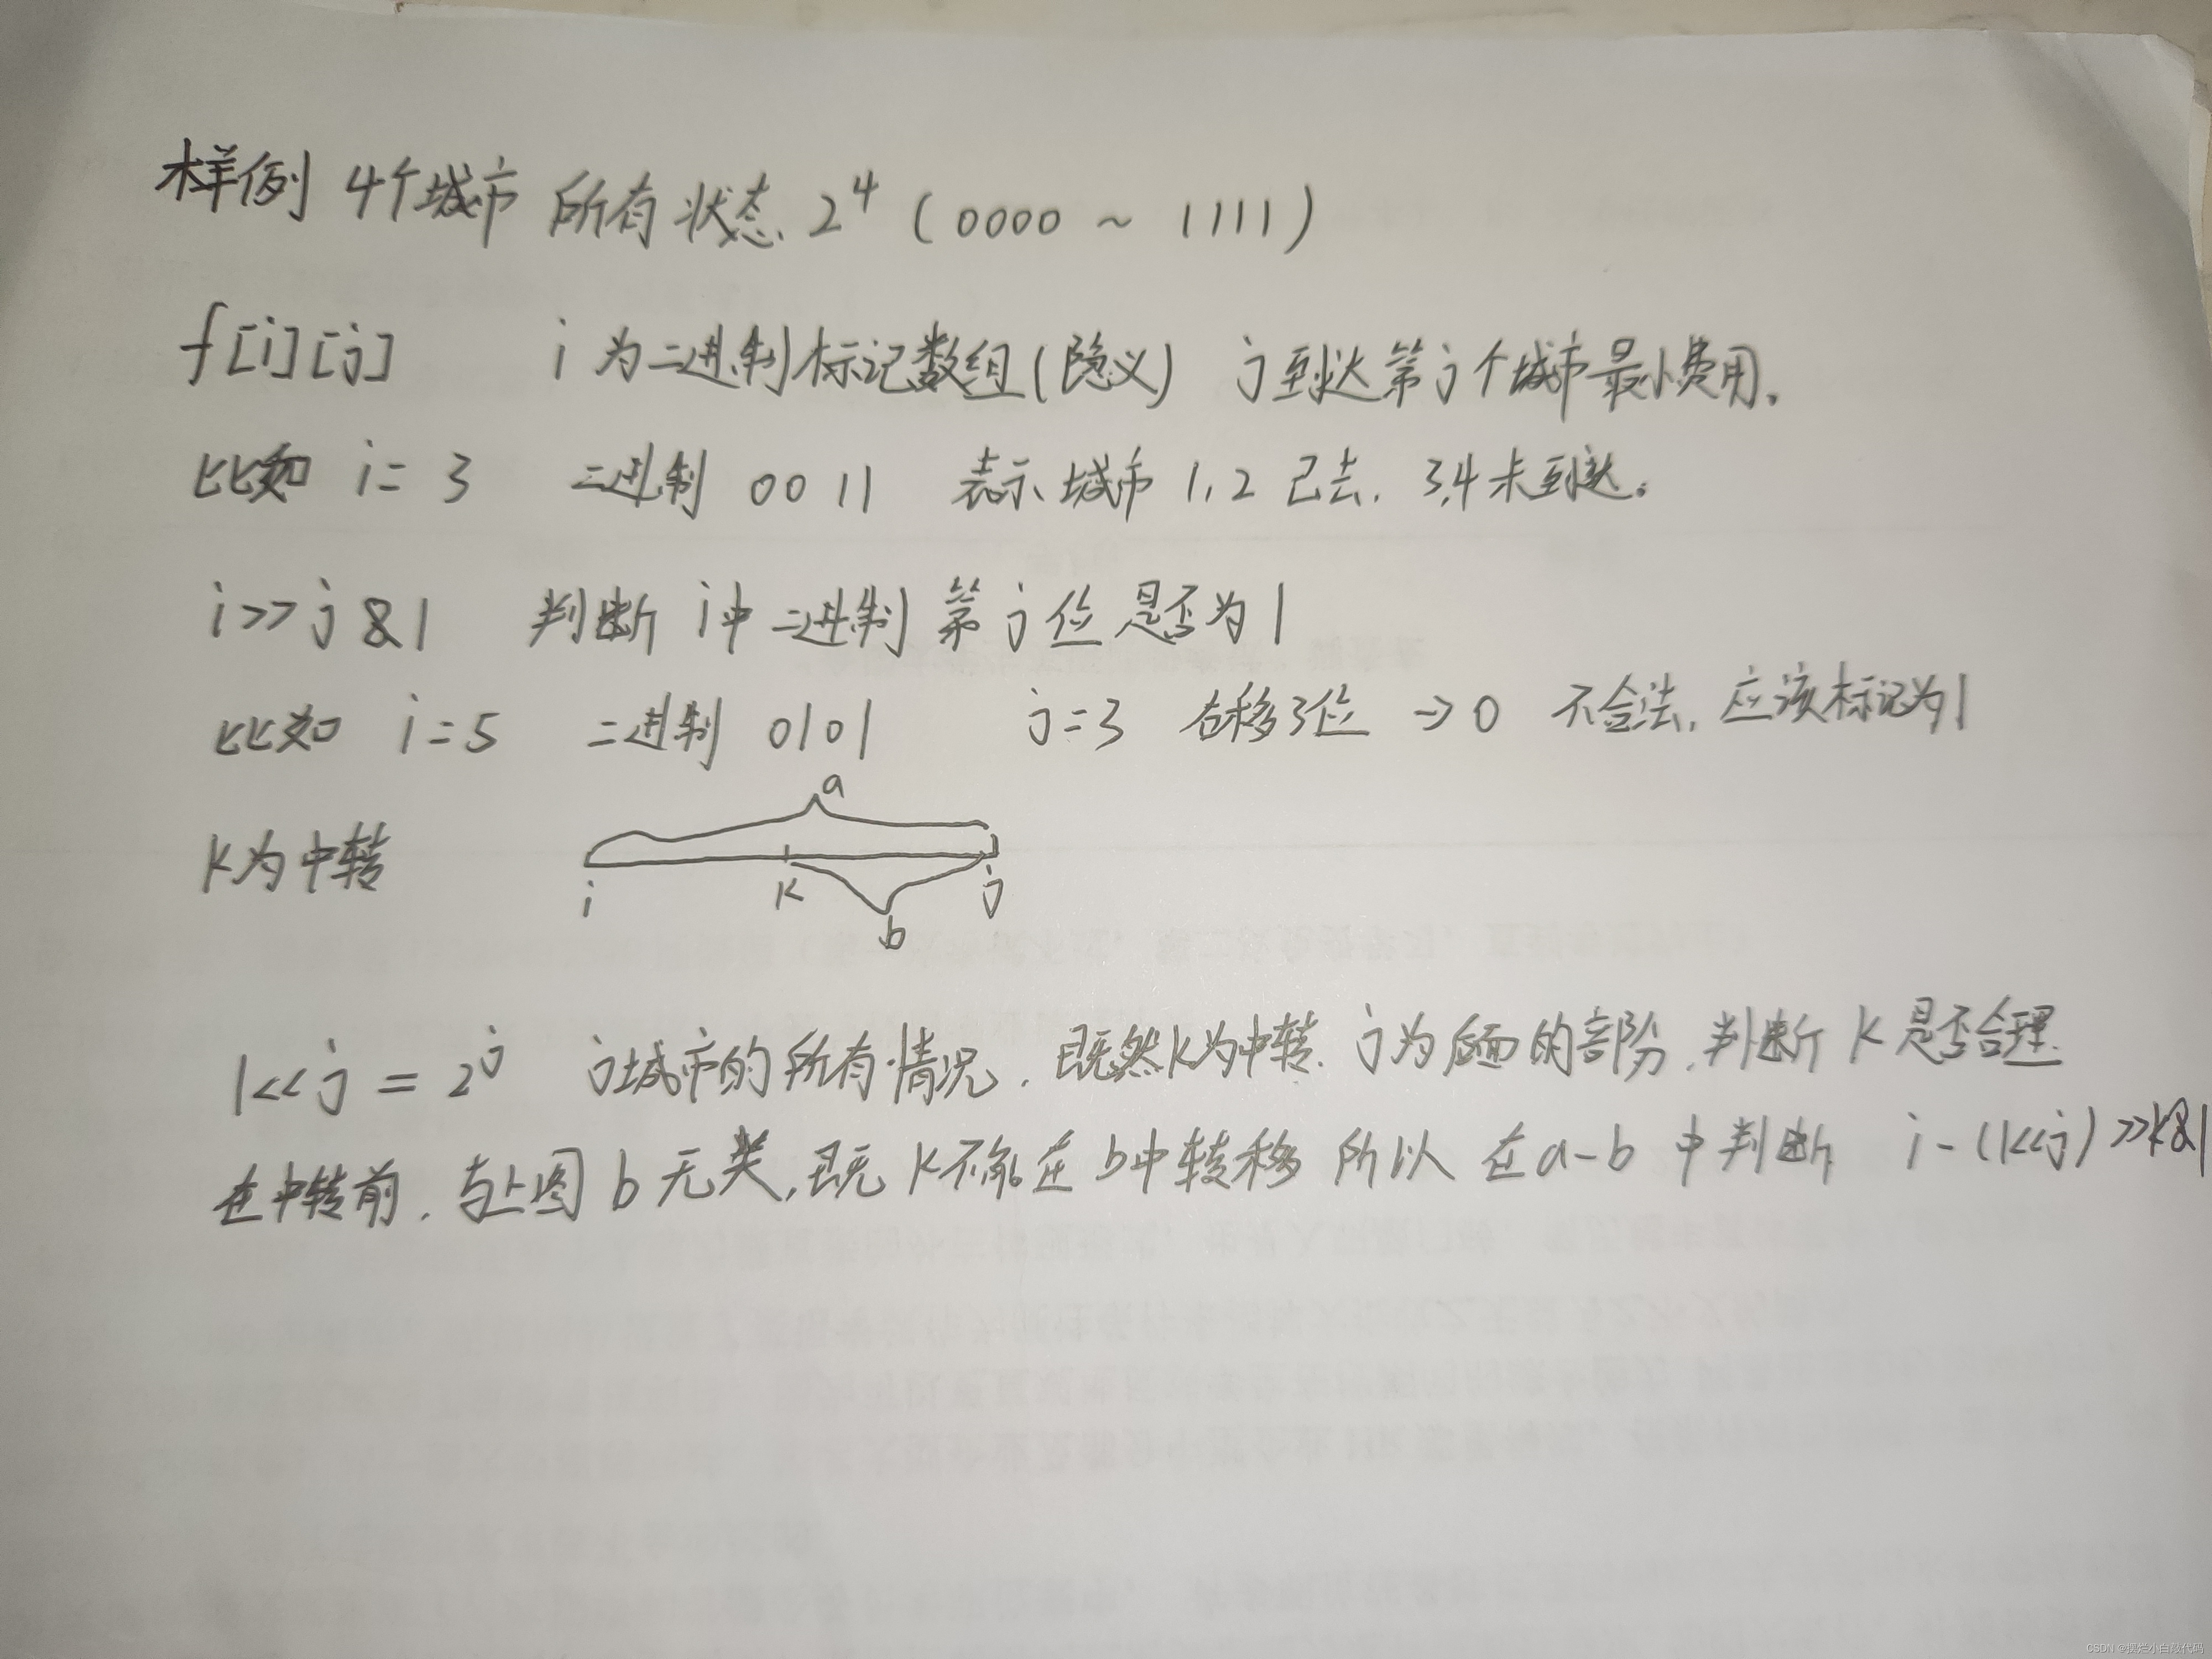 样例 4个城市 所有状态 2⁴ (0000 ~ 1111)
f[i][j] i 为二进制标记数组(隐义) j到达第j个城市最小费用。
比如 i=3 二进制 0011 表示城市 1,2 已去, 3,4未到达。
i>>j &1 判断 i中二进制 第j位 是否为1
比如 i=5 二进制 0101 j=3 右移3位 → 0 不合法, 应该标记为1
a
K为中转
i K j
b
1<<j = 2ʲ j城市的所有情况, 既然K为中转, j为后面的部分, 判断 K是否合理
在中转前, 与上图 b 无关, 既 K不能在 b中转移 所以 在a-b 中判断 i-(1<<j)>>k&1
CSDN @摆烂小白敲代码